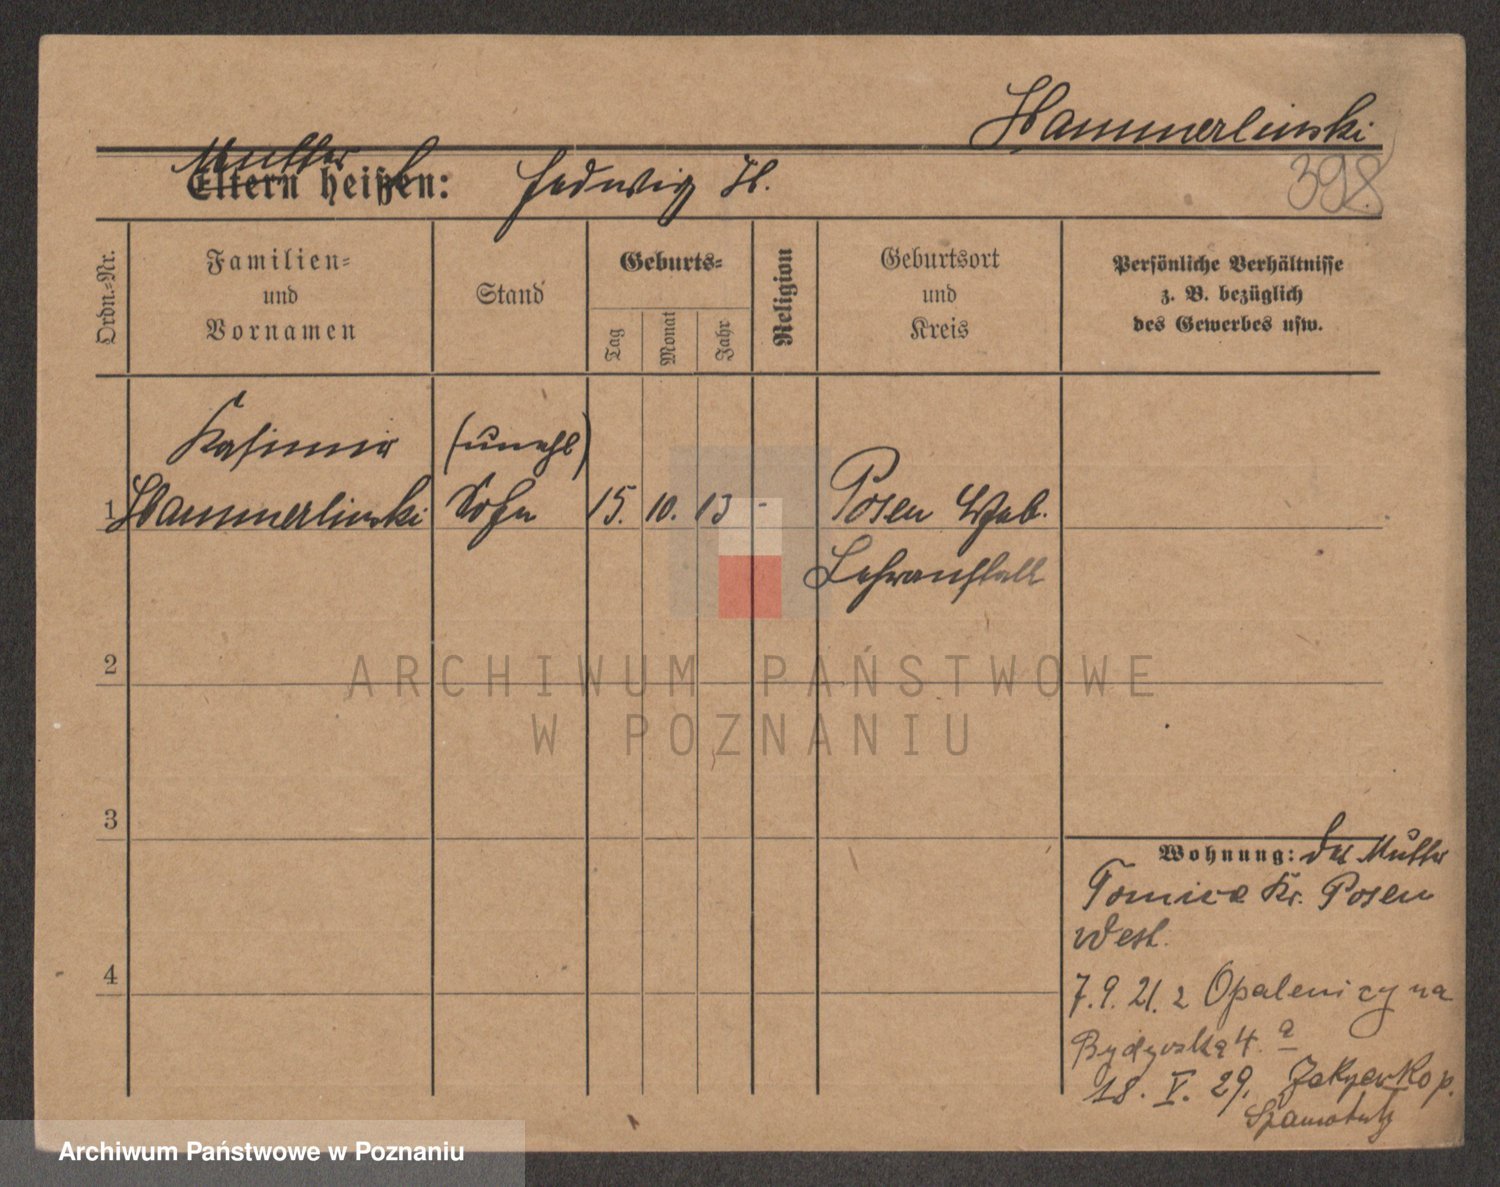 Hammerlinski
398
Mutter
Eltern heißen: Hedwig H.
Ordn.-Nr.
Familien-
und
Vornamen
Stand
Geburts-
Tag
Monat
Jahr
Religion
Geburtsort
und
Kreis
Persönliche Verhältnisse
z. B. bezüglich
des Gewerbes usw.
Kasimir (unehl)
1 Hammerlinski Sohn 15. 10. 13 - Posen Heb.
Lehranstalt
2
3
4
Wohnung: der Mutter
Tomice Kr. Posen
West.
7.9.21. z Opalenicy na
Bydgoską 4.a
18. V. 29.
Szamotuły
ARCHIWUM PAŃSTWOWE
W POZNANIU
Archiwum Państwowe w Poznaniu